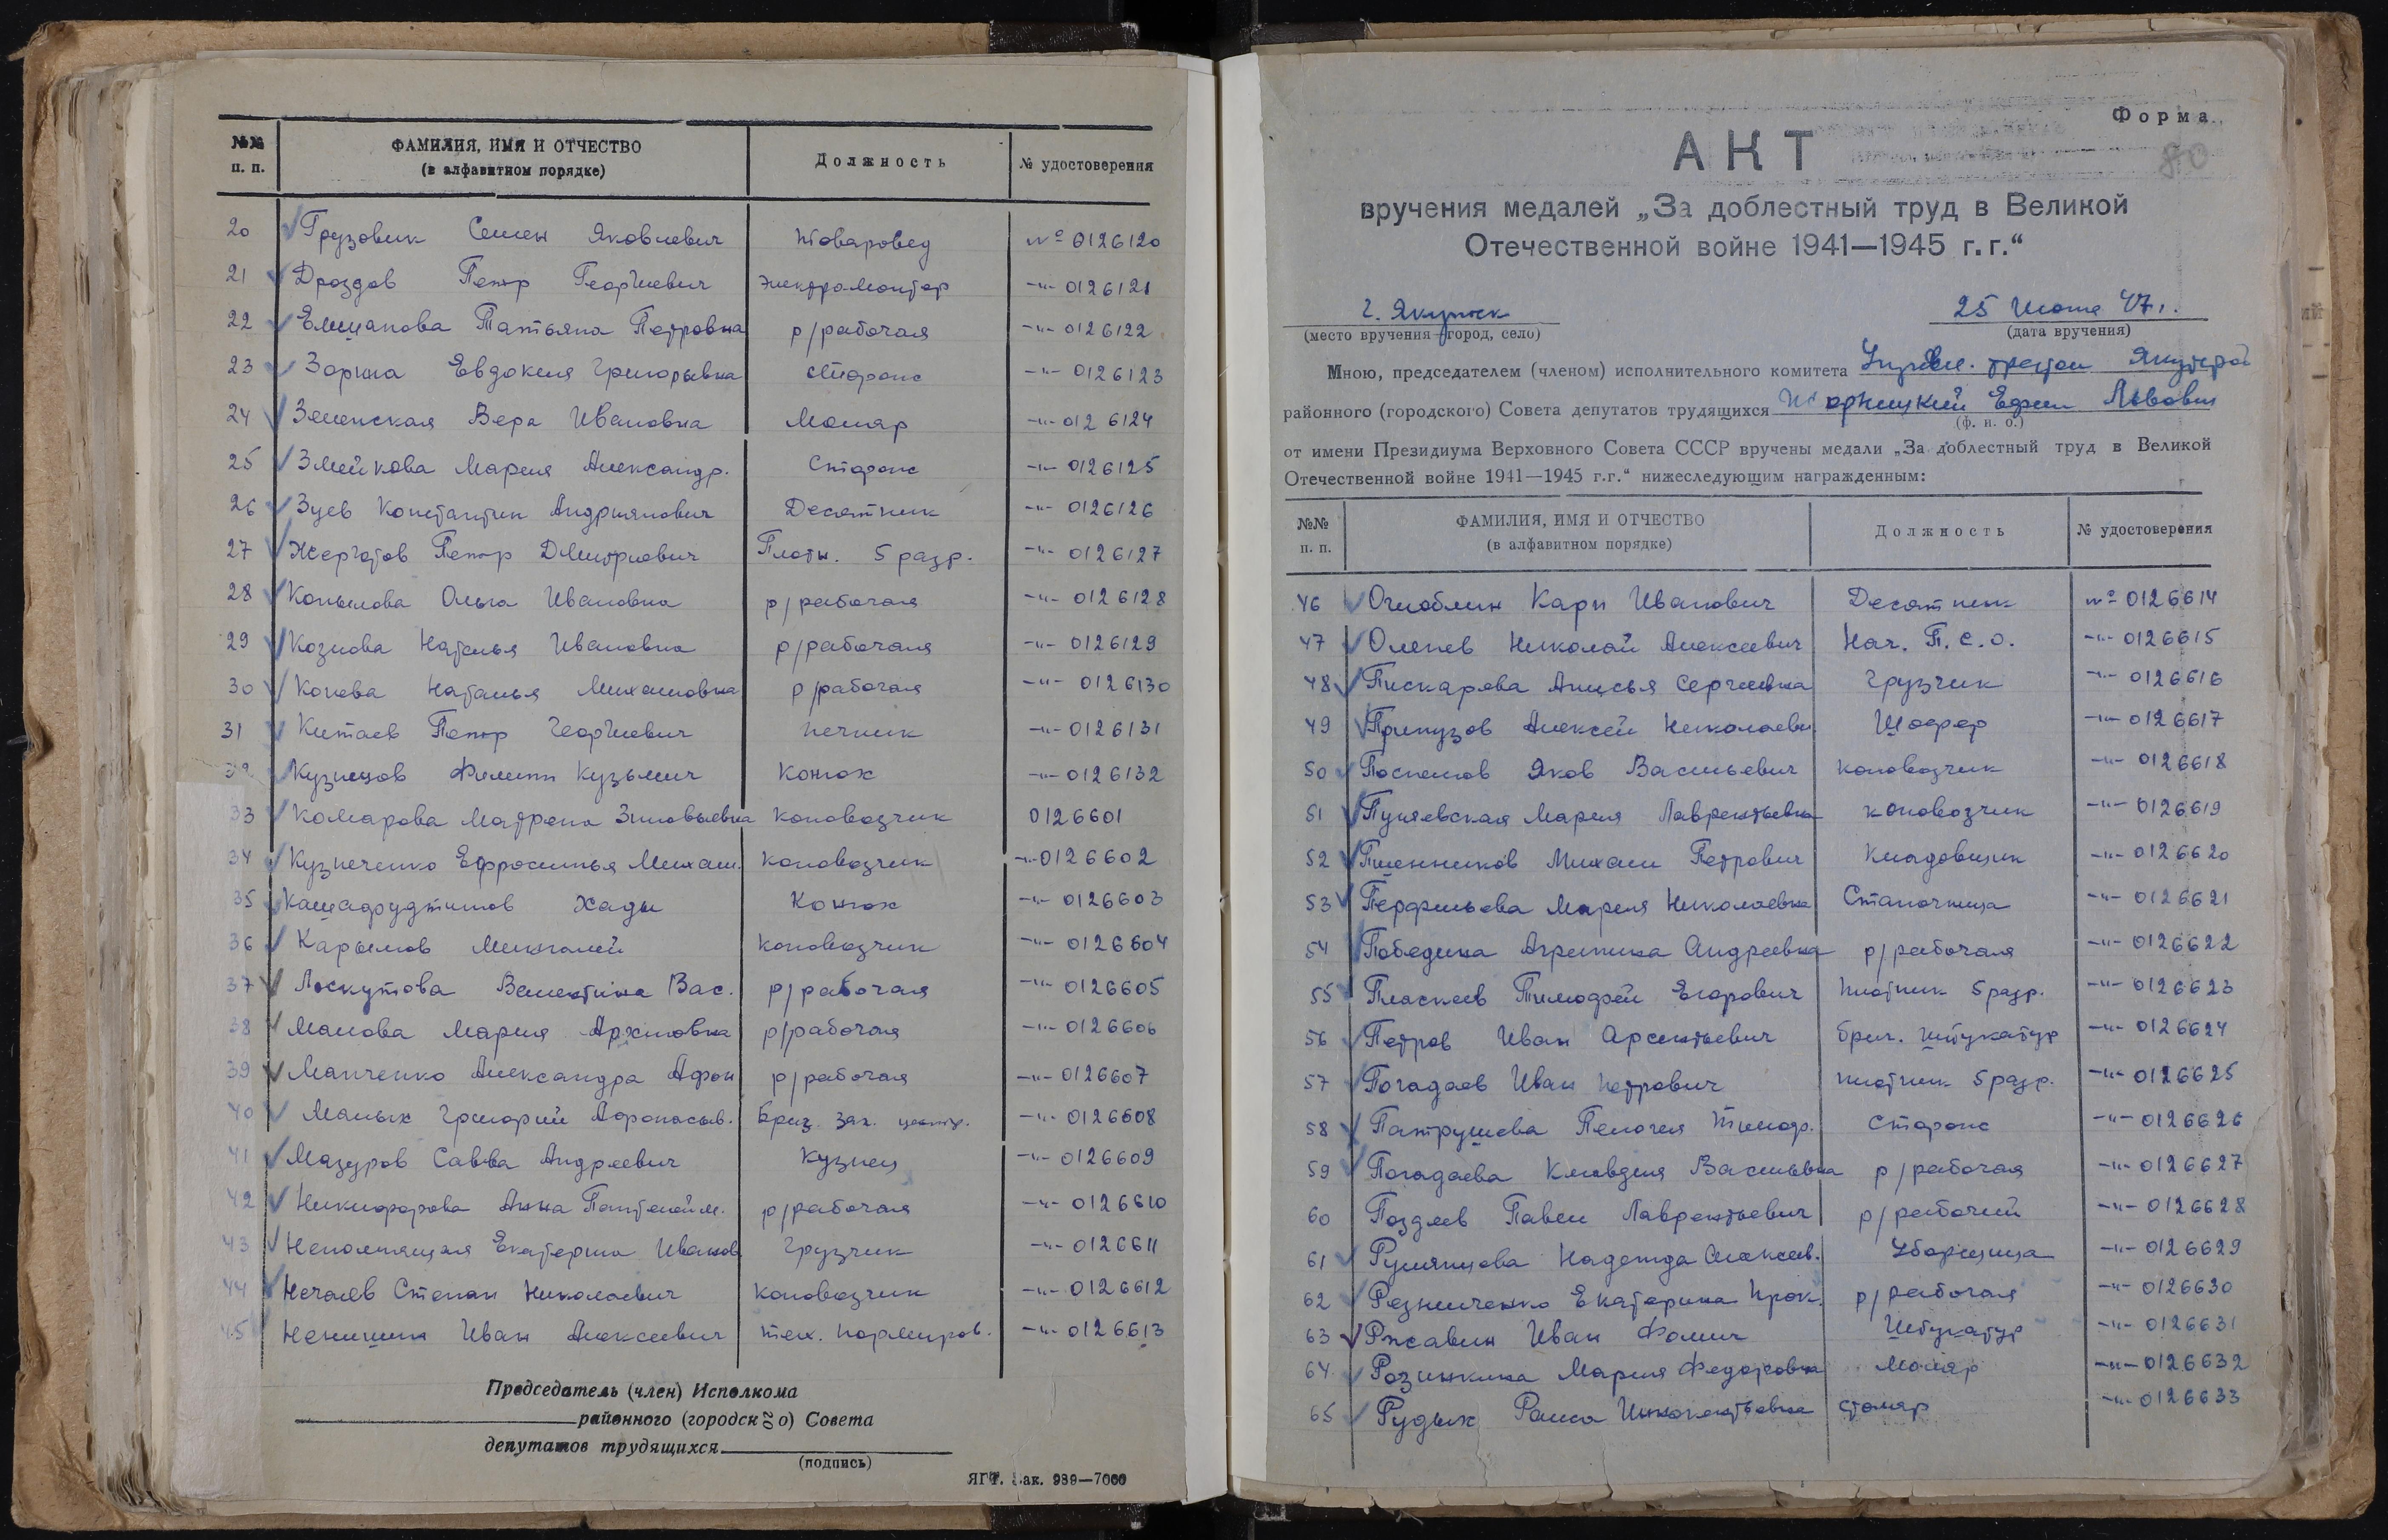 №№ п. п. ФАМИЛИЯ, ИМЯ И ОТЧЕСТВО (в алфавитном порядке) Должность № удостоверения
20 Грузовик Семен Яковлевич Товаровед № 0126120
21 Дроздов Петр Георгиевич Электромонтер -"- 0126121
22 Татьяна Петровна р/рабочая -"- 0126122
23 Зорина Евдокия Григорьевна Сторож -"- 0126123
24 Зеленская Вера Ивановна Маляр -"- 0126124
25 Змейкова Мария Александр. Сторож -"- 0126125
26 Зуев Константин Андриянович Десятник -"- 0126126
27 Петр Дмитриевич Плотн. 5 разр. -"- 0126127
28 Копылова Ольга Ивановна р/рабочая -"- 0126128
29 Козлова Наталья Ивановна р/рабочая -"- 0126129
30 Конева Наталья Михайловна р/рабочая -"- 0126130
31 Китаев Петр Георгиевич печник -"- 0126131
32 Кузнецов Филипп Кузьмич Конюх -"- 0126132
33 Комарова Матрена Зиновьевна Коновозчик 0126601
34 Кузнеченко Ефросинья Михаил. Коновозчик -"- 0126602
35 Хады Конюх -"- 0126603
36 Карымов коновозчик -"- 0126604
37 Лоскутова Валентина Вас. р/рабочая -"- 0126605
38 Малова Мария Архиповна р/рабочая -"- 0126606
39 Манченко Александра Афон р/рабочая -"- 0126607
40 Малых Григорий Афонасьев. -"- 0126608
41 Мазуров Савва Андреевич Кузнец -"- 0126609
42 Никифорова Анна Пантелейм. р/рабочая -"- 0126610
43 Непомнящая Екатерина Иванов. Грузчик -"- 0126611
44 Нечаев Степан Николаевич Коновозчик -"- 0126612
45 Иван Алексеевич тех. нормиров. -"- 0126613
Председатель (член) Исполкома
районного (городского) Совета
депутатов трудящихся
(подпись)
ЯГТ. Зак. 989—7000
Форма
80
АКТ
вручения медалей „За доблестный труд в Великой
Отечественной войне 1941—1945 г.г.“
г. Якутск 25 Июля 47 г.
(место вручения—город, село) (дата вручения)
Мною, председателем (членом) исполнительного комитета
районного (городского) Совета депутатов трудящихся Ефим Львович
(ф. и. о.)
от имени Президиума Верховного Совета СССР вручены медали „За доблестный труд в Великой
Отечественной войне 1941—1945 г.г.“ нижеследующим награжденным:
№№ п. п. ФАМИЛИЯ, ИМЯ И ОТЧЕСТВО (в алфавитном порядке) Должность № удостоверения
46 Оглоблин Карп Иванович Десятник № 0126614
47 Оленев Николай Алексеевич Нач. П.С.О. -"- 0126615
48 Пискарева Анисья Сергеевна Грузчик -"- 0126616
49 Припузов Алексей Николаеви Шофер -"- 0126617
50 Поспелов Яков Васильевич коновозчик -"- 0126618
51 Пуляевская Мария Лаврентьевна коновозчик -"- 0126619
52 Пшенников Михаил Петрович Кладовщик -"- 0126620
53 Перфильева Мария Николаевна Станочница -"- 0126621
54 Победина Агрипина Андреевна р/рабочая -"- 0126622
55 Пласкеев Тимофей Егорович плотник 5 разр. -"- 0126623
56 Петров Иван Арсентьевич бриг. штукатур -"- 0126624
57 Погадаев Иван Петрович плотник 5 разр. -"- 0126625
58 Патрушева Пелагея Тимоф. Сторож -"- 0126626
59 Погадаева Клавдия Васильевна р/рабочая -"- 0126627
60 Поздеев Павел Лаврентьевич р/рабочий -"- 0126628
61 Румянцева Надежда Алексеев. Уборщица -"- 0126629
62 Резниченко Екатерина Прок. р/рабочая -"- 0126630
63 Ржавин Иван Фомич Штукатур -"- 0126631
64 Розинкина Мария Федоровна Маляр -"- 0126632
65 Рудых Раиса Иннокентьевна столяр -"- 0126633